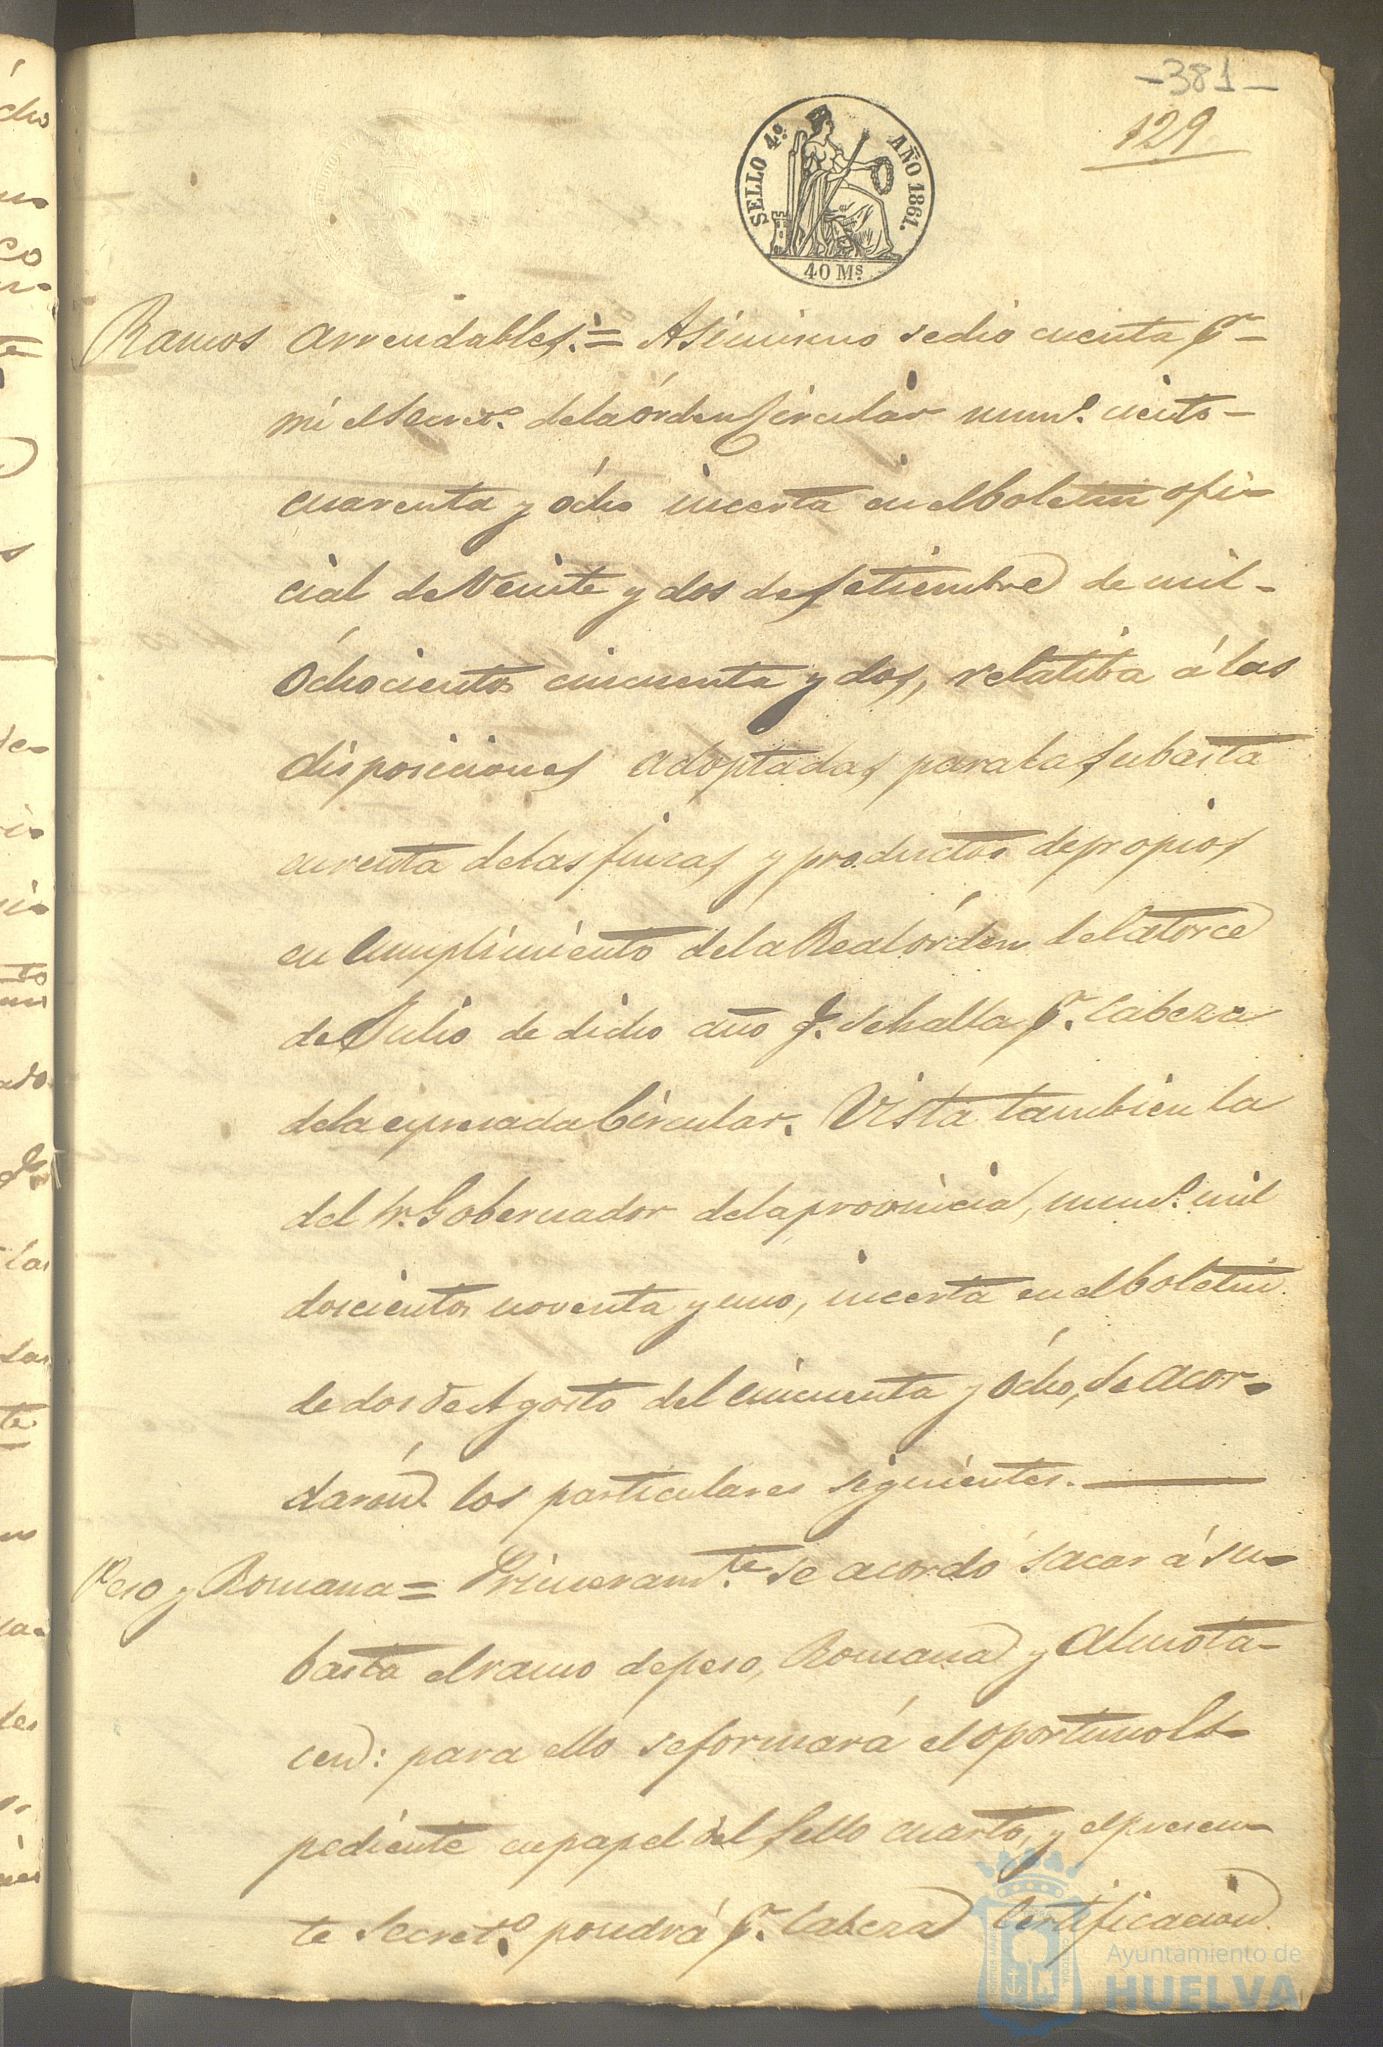 -381-
129
SELLO 4º. AÑO 1861.
40 Ms.
Ramos arrendables.= Asimismo se dio cuenta pr.
mi el Secreto. de la órden Circular numo. ciento
cuarenta y ócho incerta en el boletin ofi-
cial de Veinte y dos de Setiembre de mil-
óchocientos cincuenta y dos, relatiba á las
disposiciones adoptadas para la subasta
en renta de las fincas y productos de propios
en Cumplimiento de la Real órden de Catorce
de Julio de dicho año q. se halla pr. Cabeza
de la epresada Circular. Vista tambien la
del Sr. Gobernador de la provincia, numo. mil
doscientos noventa y uno, incerta en el boletin
de dos de Agosto del cincuenta y ócho, se acor-
darón los particulares siguientes.
Peso y Romana = Primeramte. se acordó sacar á su-
basta el ramo de peso, Romana y Almota-
cen: para ello se formará el oportuno Es-
pediente en papel del Sello cuarto, y el presen-
te Secreto. pondrá pr. Cabeza Certificacion
Ayuntamiento de
HUELVA